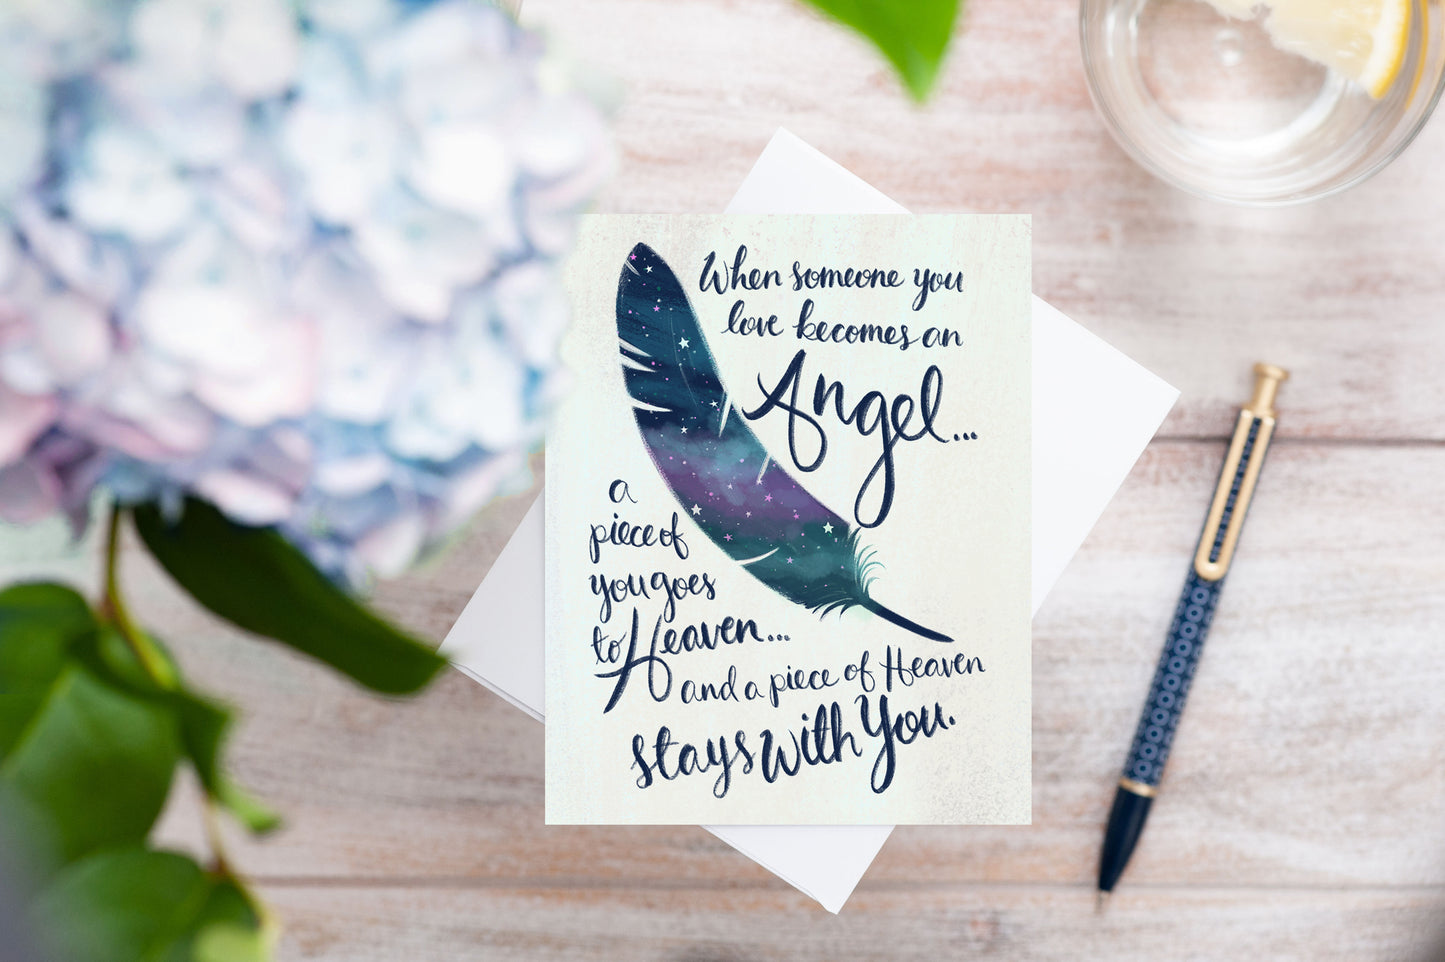 When someone you
love becomes an
Angel...
a
piece of
you goes
to Heaven...
and a piece of Heaven
stays with You.